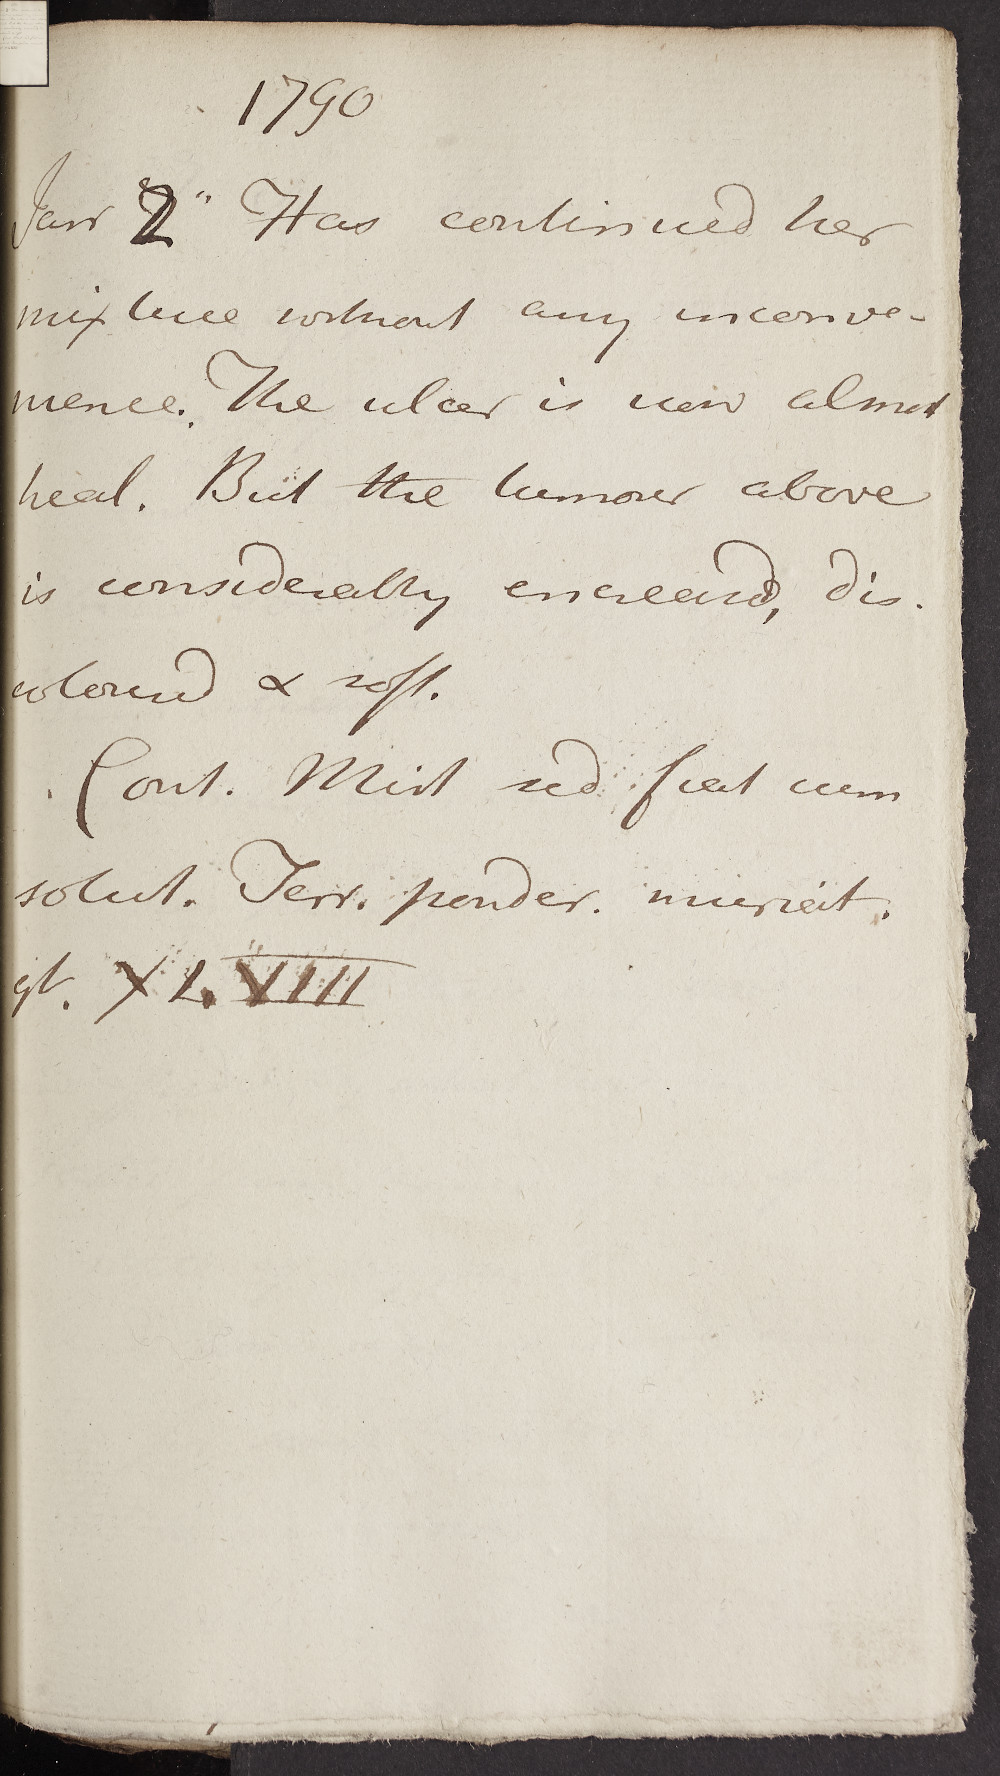 1790
Janr 2" Has continued her
mixture without any inconve-
nience. The ulcer is now almost
heal. But the tumour above
is considerably encreas'd, dis-
colour'd & soft.
Cont. Mist sed fiat cum
solut. Terr. ponder. muriat.
gt. XLVIII